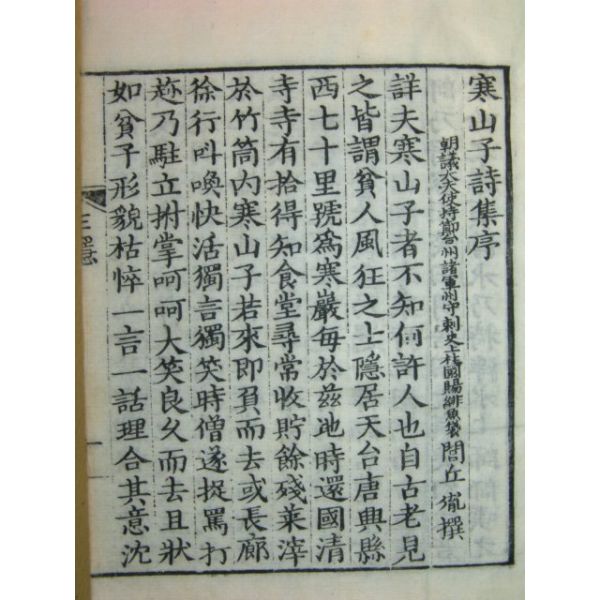 寒山子詩集序
朝議大夫使持節台州諸軍州守刺史上柱國賜緋魚袋閭丘胤撰
詳夫寒山子者不知何許人也自古老見
之皆謂貧人風狂之士隱居天台唐興縣
西七十里號為寒巖每於茲地時還國清
寺寺有拾得知食堂尋常收貯餘殘菜滓
於竹筒內寒山子若來即負而去或長廊
徐行叫喚快活獨言獨笑時僧遂捉罵打
趂乃駐立拊掌呵呵大笑良久而去且狀
如貧子形貌枯悴一言一話理合其意沈
三隱